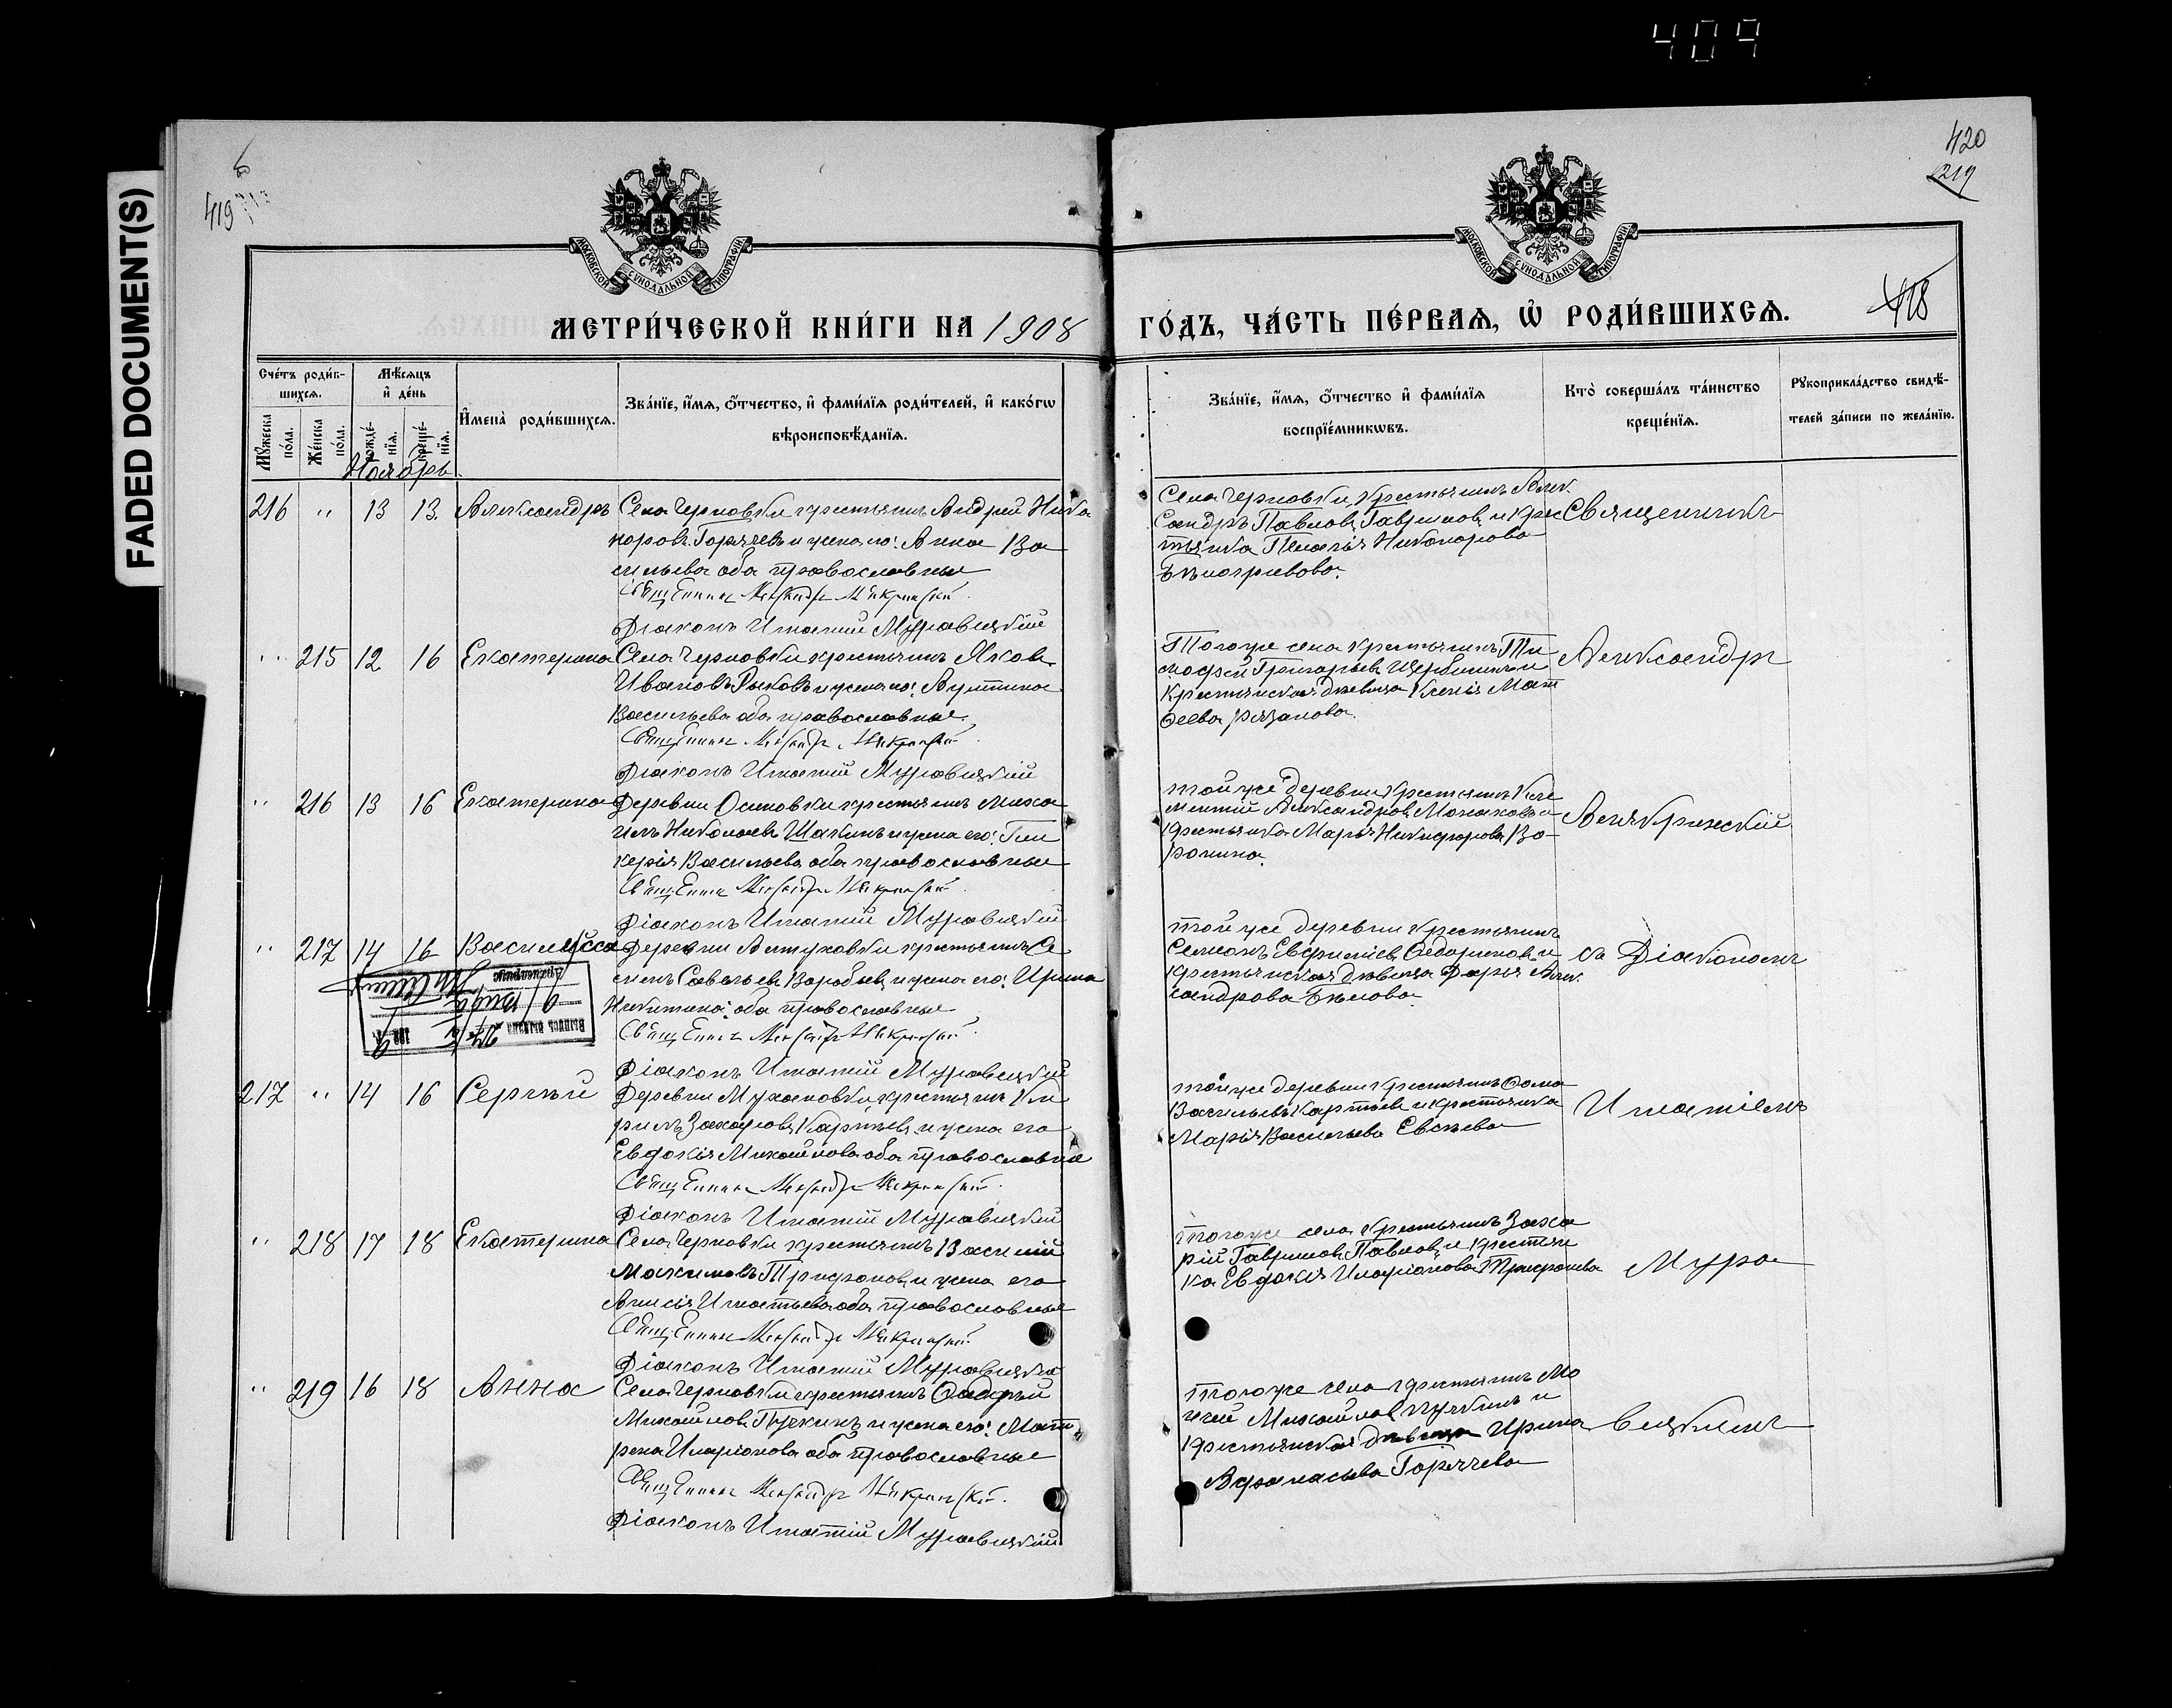 409
FADED DOCUMENT(S)
419
420
219
418
МОСКОВСКОЙ СѴНОДАЛЬНОЙ ТИПОГРАФІИ
МОСКОВСКОЙ СѴНОДАЛЬНОЙ ТИПОГРАФІИ
МЕТРИ́ЧЕСКОЙ КНИ́ГИ НА 1908
ГО́ДЪ, ЧА́СТЬ ПЕ́РВАЯ, Ѡ РОДИ́ВШИХСЯ.
Сче́тъ роди́в-
шихся.
Мѣ́сяцъ
и де́нь
Му́жеска
по́ла.
Же́нска
по́ла.
рожде́-
нїя.
креще́-
нїя.
Имена̀ роди́вшихся.
Зва́нїе, и́мя, ѻ́тчество, и фами́лїя роди́телей, и како́гѡ
вѣроисповѣ́данїя.
Зва́нїе, и́мя, ѻ́тчество и фами́лїя
воспрїе́мникѡвъ.
Кто̀ соверша́лъ та́инство
креще́нїя.
Рукоприкла́дство свидѣ́-
телей за́писи по жела́нїю.
Ноябрь.
216 " 13 13. Александръ Села Черновки крестьянинъ Андрей Ника
норовъ Горячевъ и жена его: Анна Ва
сильева оба православные
Священникъ Александръ
Діаконъ Игнатий Муравицкій
Села Черновки, крестьянинъ Алек
сандръ Павловъ Гавриловъ и крес
тьянка Пелагія Никанорова
Священникъ
" 215 12 16 Екатерина Села Черновки крестьянинъ Яковъ
Ивановъ Рыковъ и жена его:
Васильева оба православные
Священникъ Александръ
Діаконъ Игнатий Муравицкій
Того же села крестьянинъ Ти
мофей Григорьевъ Щербининъ и
крестьянская дѣвица Ксенія Мат
ѳеева Рязанова.
Александръ
" 216 13 16 Екатерина Деревни Осиновки крестьянинъ Миха
илъ Николаевъ Шаткинъ и жена его: Гли
керія Васильева оба православные
Священникъ Александръ
Діаконъ Игнатий Муравицкій
той же деревни крестьянинъ Кле
ментій Александровъ и
крестьянка Марья Никифорова Во-
ронина.
" 217 14 16 Василисса Деревни крестьянинъ Се
менъ Савельевъ Воробьевъ и жена его: Ирина
Никитина: оба православные
Священникъ Александръ
Діаконъ Игнатий Муравицкій
той же деревни крестьянинъ
и
крестьянская дѣвица Дарья Алек
сандрова Бѣлова
съ Діакономъ
Выпись выдана
217 " 14 16 Сергѣй Деревни Мухановки, крестьянинъ Ки
рилъ Захаровъ Карпѣевъ и жена его
Евдокія Михайлова оба православные
Священникъ Александръ
Діаконъ Игнатий Муравицкій
той же деревни крестьянинъ Ѳома
Васильевъ и крестьянка
Марія Васильева Евсѣева
Игнатіемъ
" 218 17 18 Екатерина Села Черновки крестьянинъ Василій
Максимовъ Трифоновъ и жена его
Анисія Игнатьева оба православные
Священникъ Александръ
Діаконъ Игнатий Муравицкій
того же села крестьянинъ Заха
рій Гавриловъ Павловъ и крестьян
ка Евдокія Иларіонова Трифонова
Мура
" 219 16 18 Анна Села Черновки крестьянинъ Андрей
Михайловъ Пучкинъ и жена его: Мат
рена Иларіонова оба православные
Священникъ Александръ
Діаконъ Игнатий Муравицкій
того же села крестьянинъ Мо
исей Михайловъ Пучкинъ и
крестьянская дѣвица Ирина
Афанасьева Горячева
вицкимъ